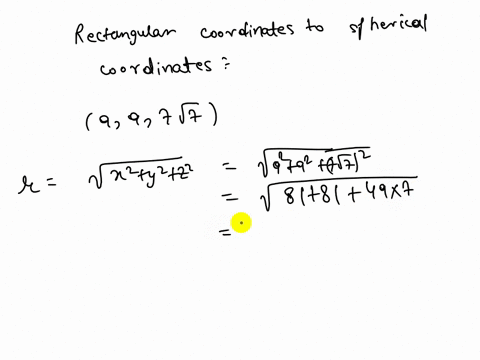 Rectangular coordinates to spherical
coordinates :
(9, 9, 7√7)
r = √x²+y²+z² = √9²+9²+(7√7)²
= √81+81+49×7
=